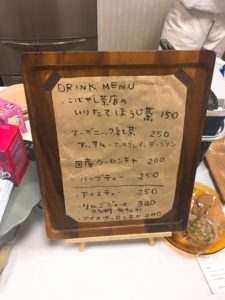 DRINK MENU
・こばやし茶店の
いりたてほうじ茶 150
オーガニック紅茶 250
アッサム・アールグレイ・ダージリン
国産ウーロンチャ 200
ハーブティー 250
アイスティー 250
りんごジュース 300
・アイスウーロンチャ 200